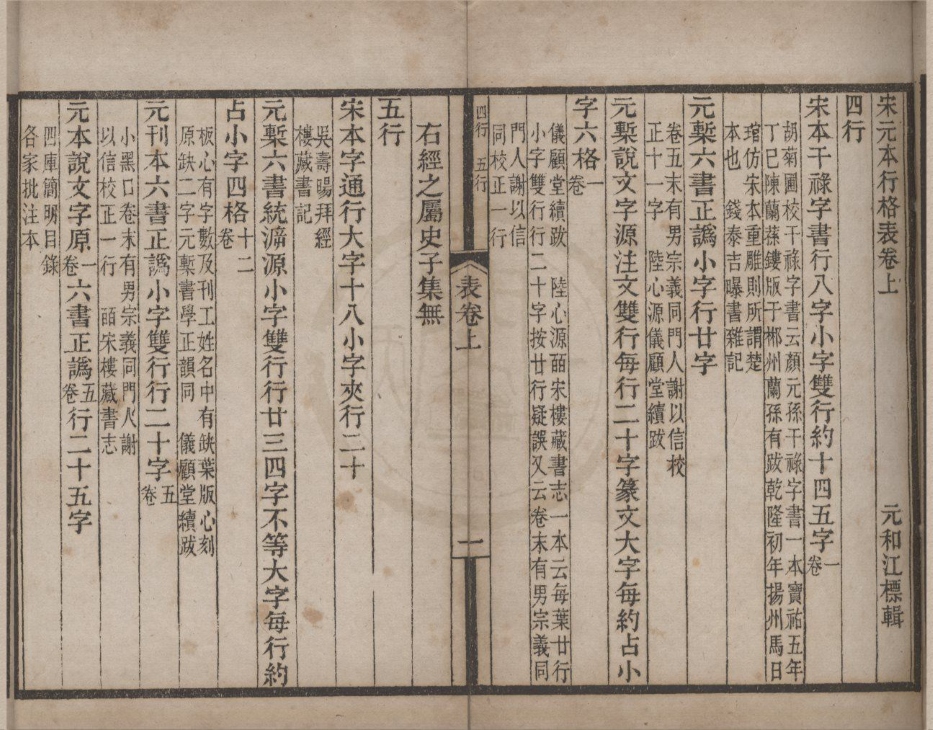 宋元本行格表卷上
元和江標輯
四行
宋本干祿字書行八字小字雙行約十四五字一卷
胡菊圃校干祿字書云顏元孫干祿字書一本寶祐五年
丁巳陳蘭蓀鏤版于郴州蘭孫有跋乾隆初年揚州馬日
琯仿宋本重雕則所謂楚
本也　錢泰吉曝書雜記
元槧六書正譌小字行廿字
卷五末有男宗義同門人謝以信校
正十一字　陸心源儀顧堂續跋
元槧說文字源注文雙行每行二十字篆文大字每約占小
字六格一卷
儀顧堂續跋　陸心源皕宋樓藏書志一本云每葉廿行
小字雙行行二十字按廿行疑誤又云卷末有男宗義同
門人謝以信
同校正一行
四行　五行
表卷上
一
右經之屬史子集無
五行
宋本字通行大字十八小字夾行二十
吳壽暘拜經
樓藏書記
元槧六書統溯源小字雙行行廿三四字不等大字每行約
占小字四格十二卷
板心有字數及刊工姓名中有缺葉版心刻
原缺二字元槧書學正韻同　儀顧堂續跋
元刊本六書正譌小字雙行行二十字五卷
小黑口卷末有男宗義同門人謝
以信校正一行　皕宋樓藏書志
元本說文字原一卷六書正譌五卷行二十五字
四庫簡明目錄
各家批注本